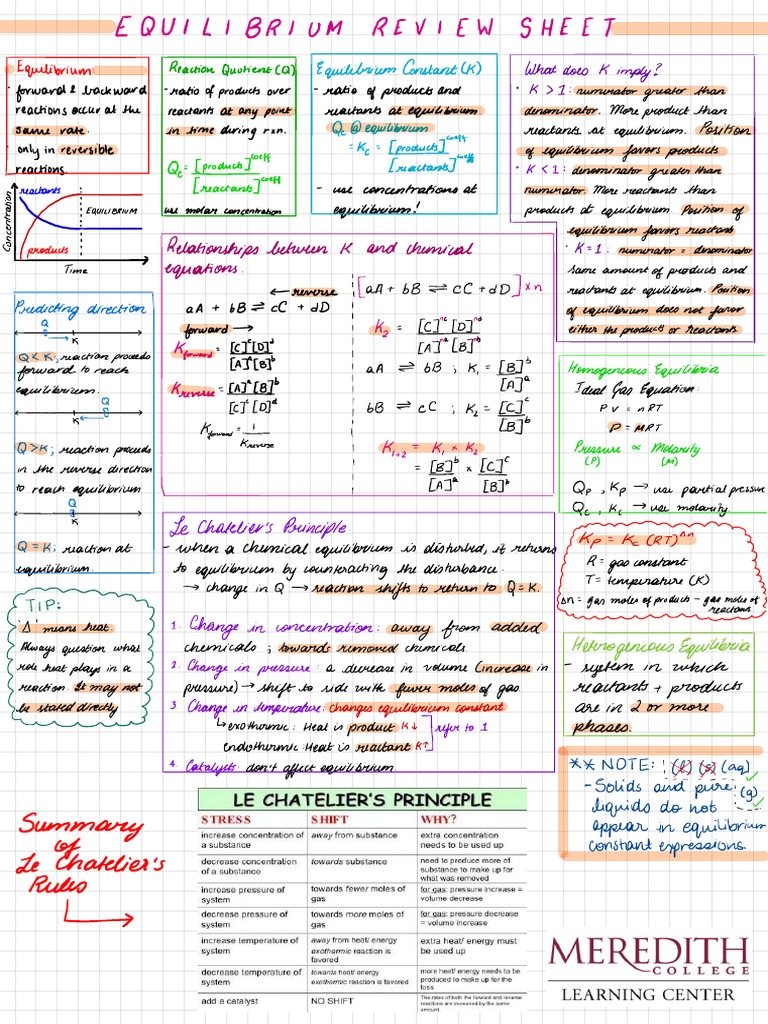 EQUILIBRIUM REVIEW SHEET
Equilibrium:
· forward & backward
reactions occur at the
same rate.
· only in reversible
reactions.
Concentration
reactants
EQUILIBRIUM
products
Time
Reaction Quotient (Q)
- ratio of products over
reactants at any point
in time during rxn.
Qc = [products]^coeff
[reactants]^coeff
use molar concentration
Equilibrium Constant (K)
- ratio of products and
reactants at equilibrium
Qc @ equilibrium
= Kc = [products]^coeff
[reactants]^coeff
- use concentrations at
equilibrium!
What does K imply?
· K > 1: numerator greater than
denominator. More product than
reactants at equilibrium. Position
of equilibrium favors products
· K < 1: denominator greater than
numerator. More reactants than
products at equilibrium. Position of
equilibrium favors reactants
· K = 1: numerator = denominator
same amount of products and
reactants at equilibrium. Position
of equilibrium does not favor
either the products or reactants
Predicting direction
Q
K
Q < K; reaction proceeds
forward to reach
equilibrium.
Q
K
Q > K; reaction proceeds
in the reverse direction
to reach equilibrium
Q
K
Q = K; reaction at
equilibrium.
Relationships between K and chemical
equations.
← reverse
aA + bB ⇌ cC + dD
forward →
Kforward = [C]^c [D]^d
[A]^a [B]^b
Kreverse = [A]^a [B]^b
[C]^c [D]^d
Kforward = 1
Kreverse
[aA + bB ⇌ cC + dD] x n
K2 = [C]^nc [D]^nd
[A]^na [B]^nb
aA ⇌ bB ; K1 = [B]^b
[A]^a
bB ⇌ cC ; K2 = [C]^c
[B]^b
K1+2 = K1 x K2
= [B]^b x [C]^c
[A]^a [B]^b
Homogeneous Equilibria
Ideal Gas Equation:
PV = nRT
P = MRT
Pressure ∝ Molarity
(P) (M)
Qp, Kp → use partial pressure
Qc, Kc → use molarity.
Kp = Kc (RT)^Δn
R = gas constant
T = temperature (K)
Δn = gas moles of product - gas moles of
reactants
TIP:
'Δ' means heat
Always question what
role heat plays in a
reaction. It may not
be stated directly
Le Chatelier's Principle
- when a chemical equilibrium is disturbed, it returns
to equilibrium by counteracting the disturbance.
→ change in Q → reaction shifts to return to Q = K.
1. Change in concentration: away from added
chemicals ; towards removed chemicals
2. Change in pressure: a decrease in volume (increase in
pressure) → shift to side with fewer moles of gas
3 Change in temperature: changes equilibrium constant
↳ exothermic: Heat is product K↓
refer to 1
endothermic: Heat is reactant K↑
4. Catalysts don't affect equilibrium.
Heterogeneous Equilibria
- system in which
reactants + products
are in 2 or more
phases.
** NOTE: (l) (s) (aq)
(g)
- Solids and pure
liquids do not
appear in equilibrium
constant expressions.
Summary
of
Le Chatelier's
Rules
LE CHATELIER'S PRINCIPLE
STRESS SHIFT WHY?
increase concentration of a substance | away from substance | extra concentration needs to be used up
decrease concentration of a substance | towards substance | need to produce more of substance to make up for what was removed
increase pressure of system | towards fewer moles of gas | for gas: pressure increase = volume decrease
decrease pressure of system | towards more moles of gas | for gas: pressure decrease = volume increase
increase temperature of system | away from heat/ energy exothermic reaction is favored | extra heat/ energy must be used up
decrease temperature of system | towards heat/ energy exothermic reaction is favored | more heat/ energy needs to be produced to make up for the loss
add a catalyst | NO SHIFT | The rates of both the forward and reverse reactions are increased by the same amount.
MEREDITH
COLLEGE
LEARNING CENTER